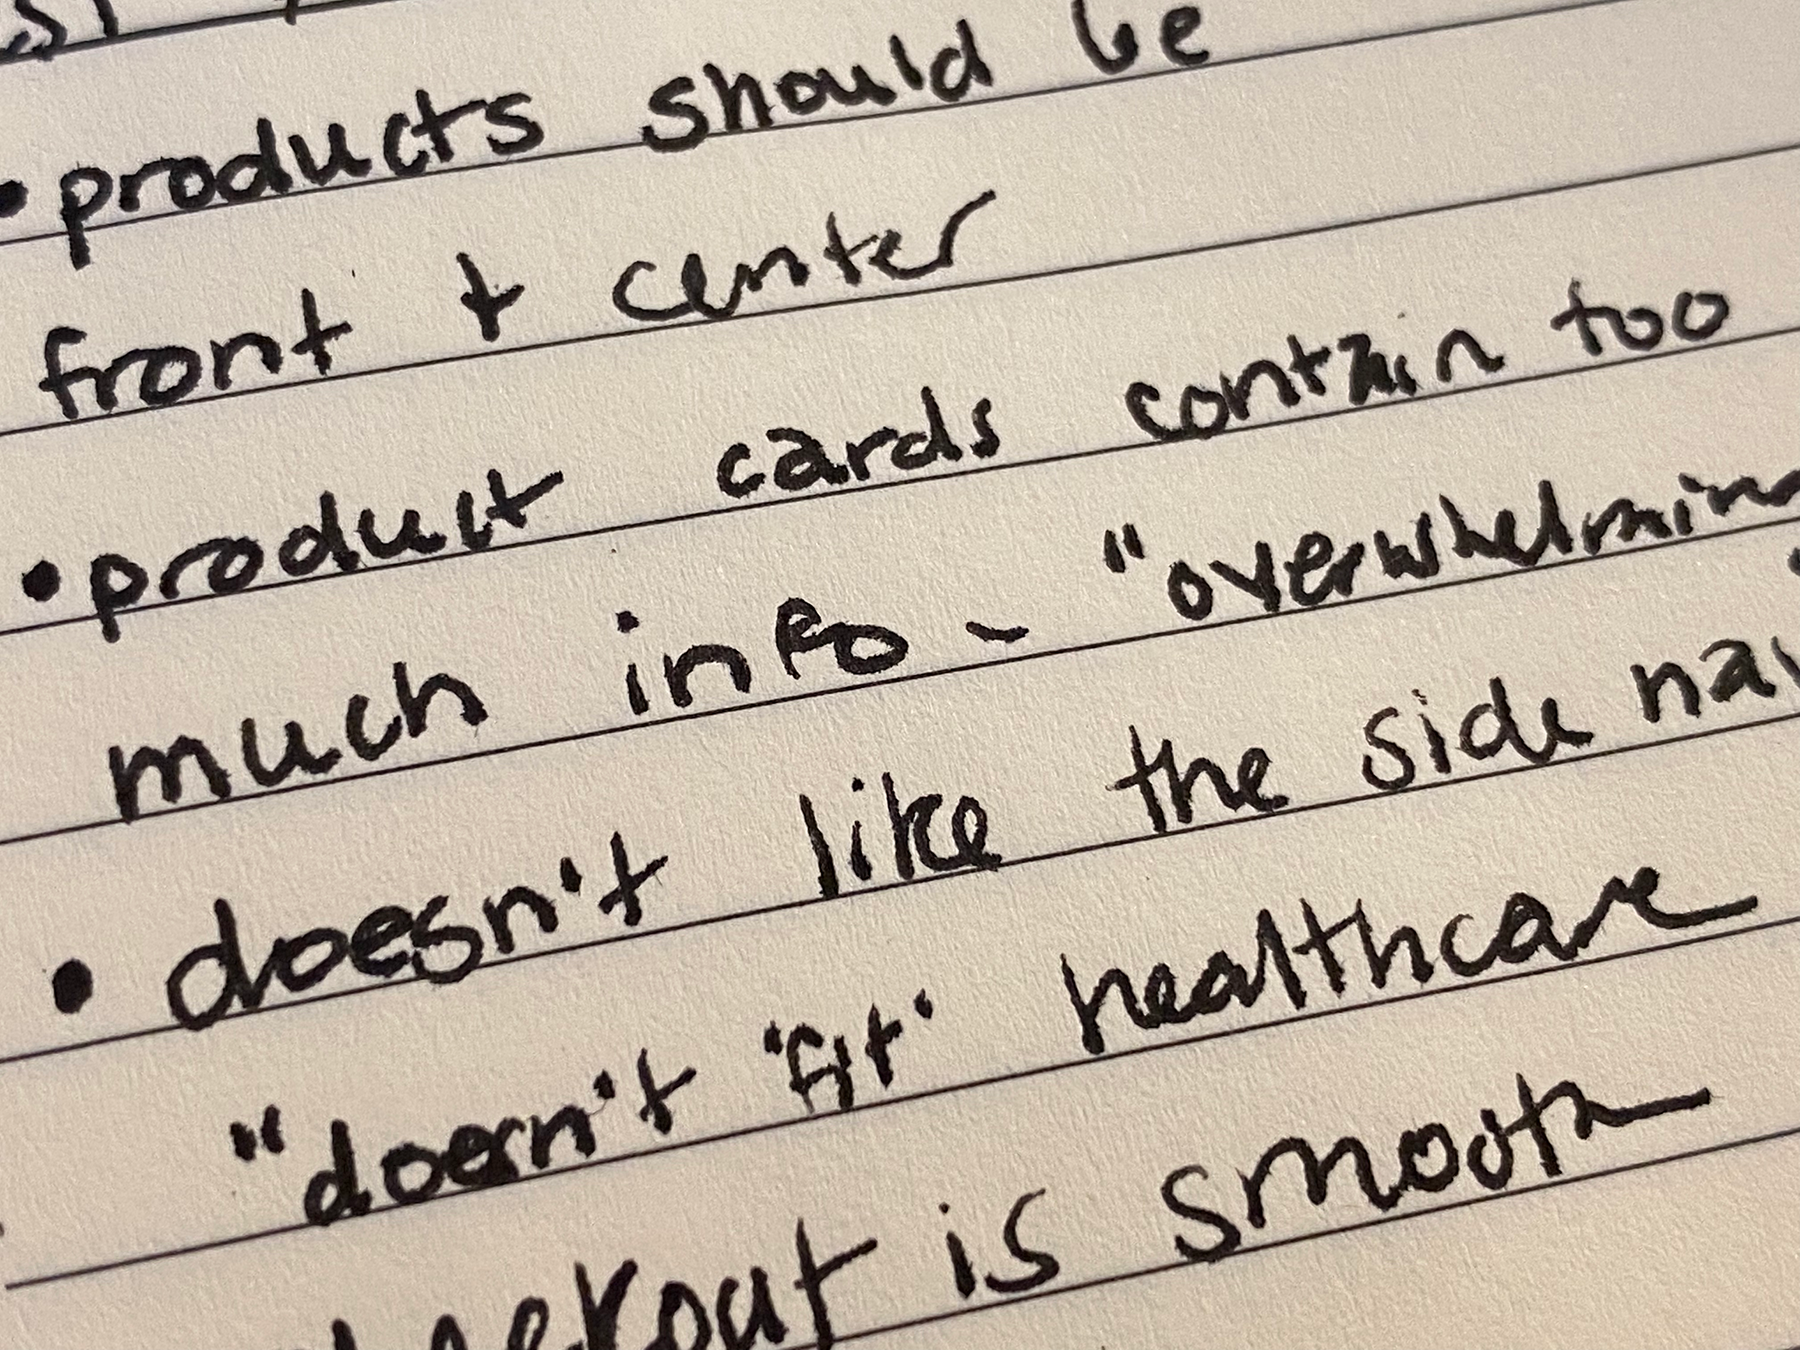 • products should be
front + center
• product cards contain too
much info - "overwhelming
• doesn't like the side nav
"doesn't 'fit' healthcare
checkout is smooth